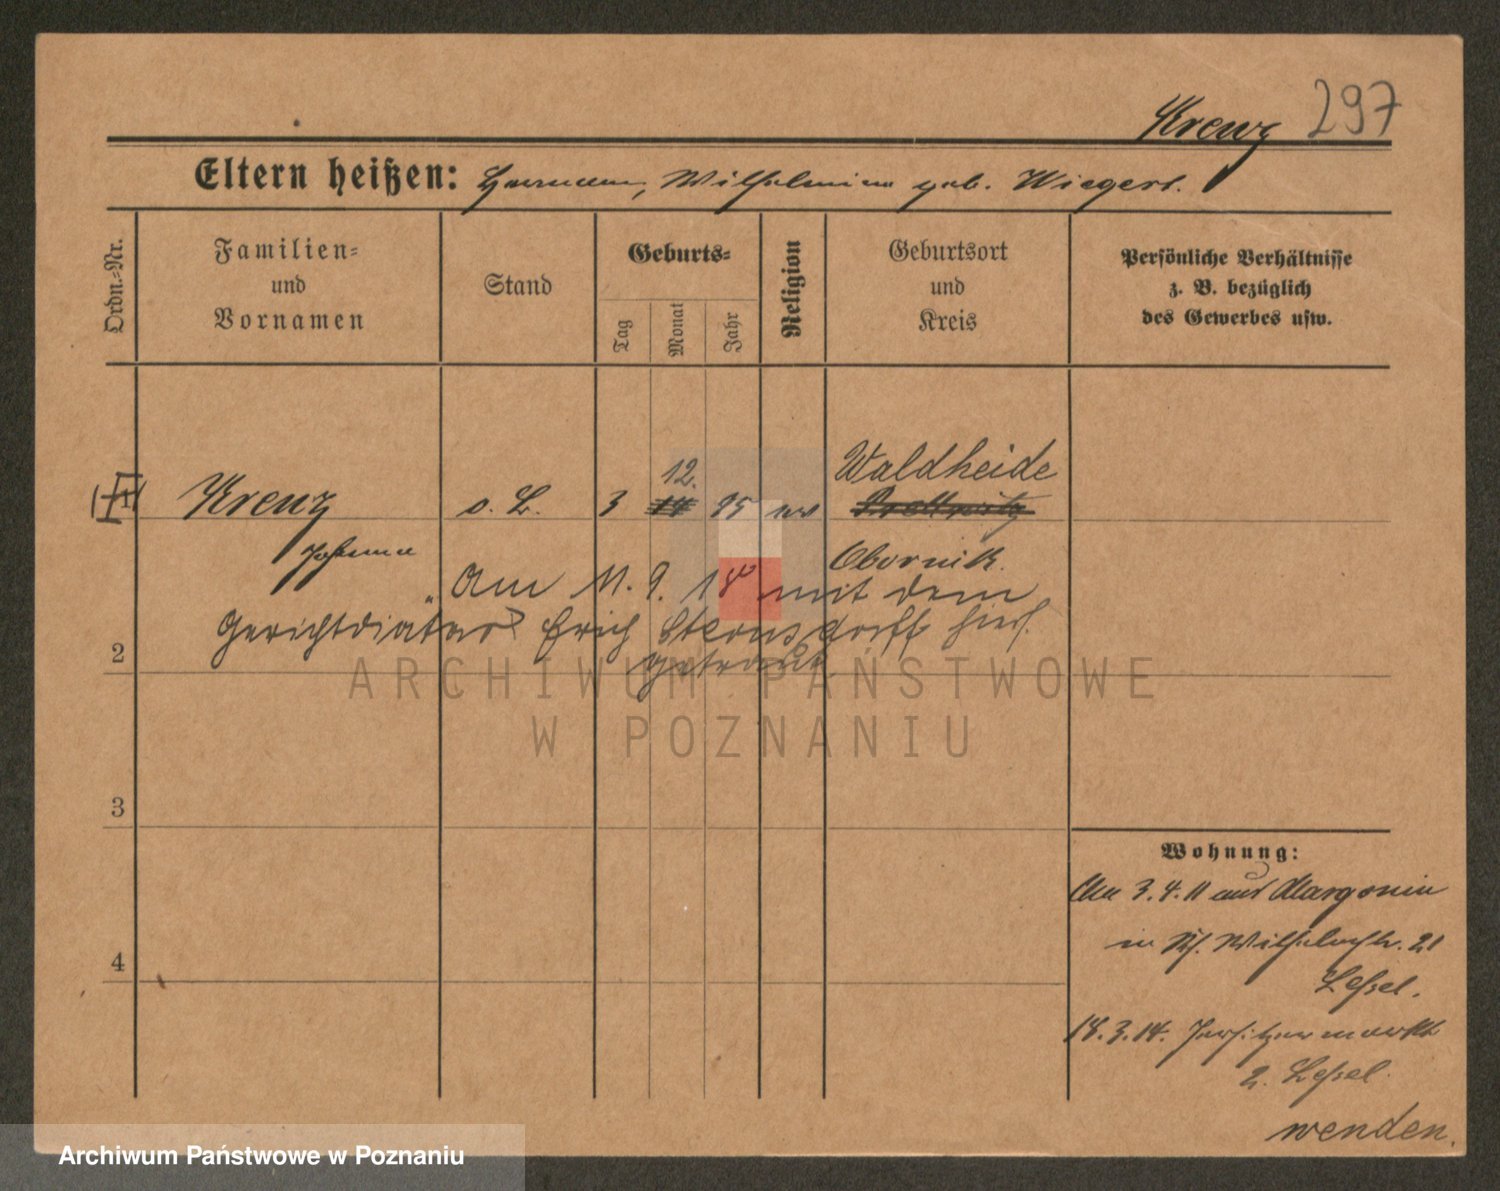 Krenz 297
Eltern heißen: Hermann, Wilhelmine geb. Wiegert.
Ordn.-Nr.
Familien-
und
Vornamen
Stand
Geburts-
Tag
Monat
Jahr
Religion
Geburtsort
und
Kreis
Persönliche Verhältnisse
z. B. bezüglich
des Gewerbes usw.
1 Krenz o. L. 3 12. 95 Waldheide
Johanna Obornik.
Am 11. 9. 18 mit dem
Gerichtdiätar Erich hier.
getraut
2
3
4
Wohnung:
Am 3.4.11 aus Margonin
in Wilhelmstr. 21
Leßel.
18.3.14. Jersitzermarkt
2. Leßel.
wenden.
ARCHIWUM PAŃSTWOWE
W POZNANIU
Archiwum Państwowe w Poznaniu